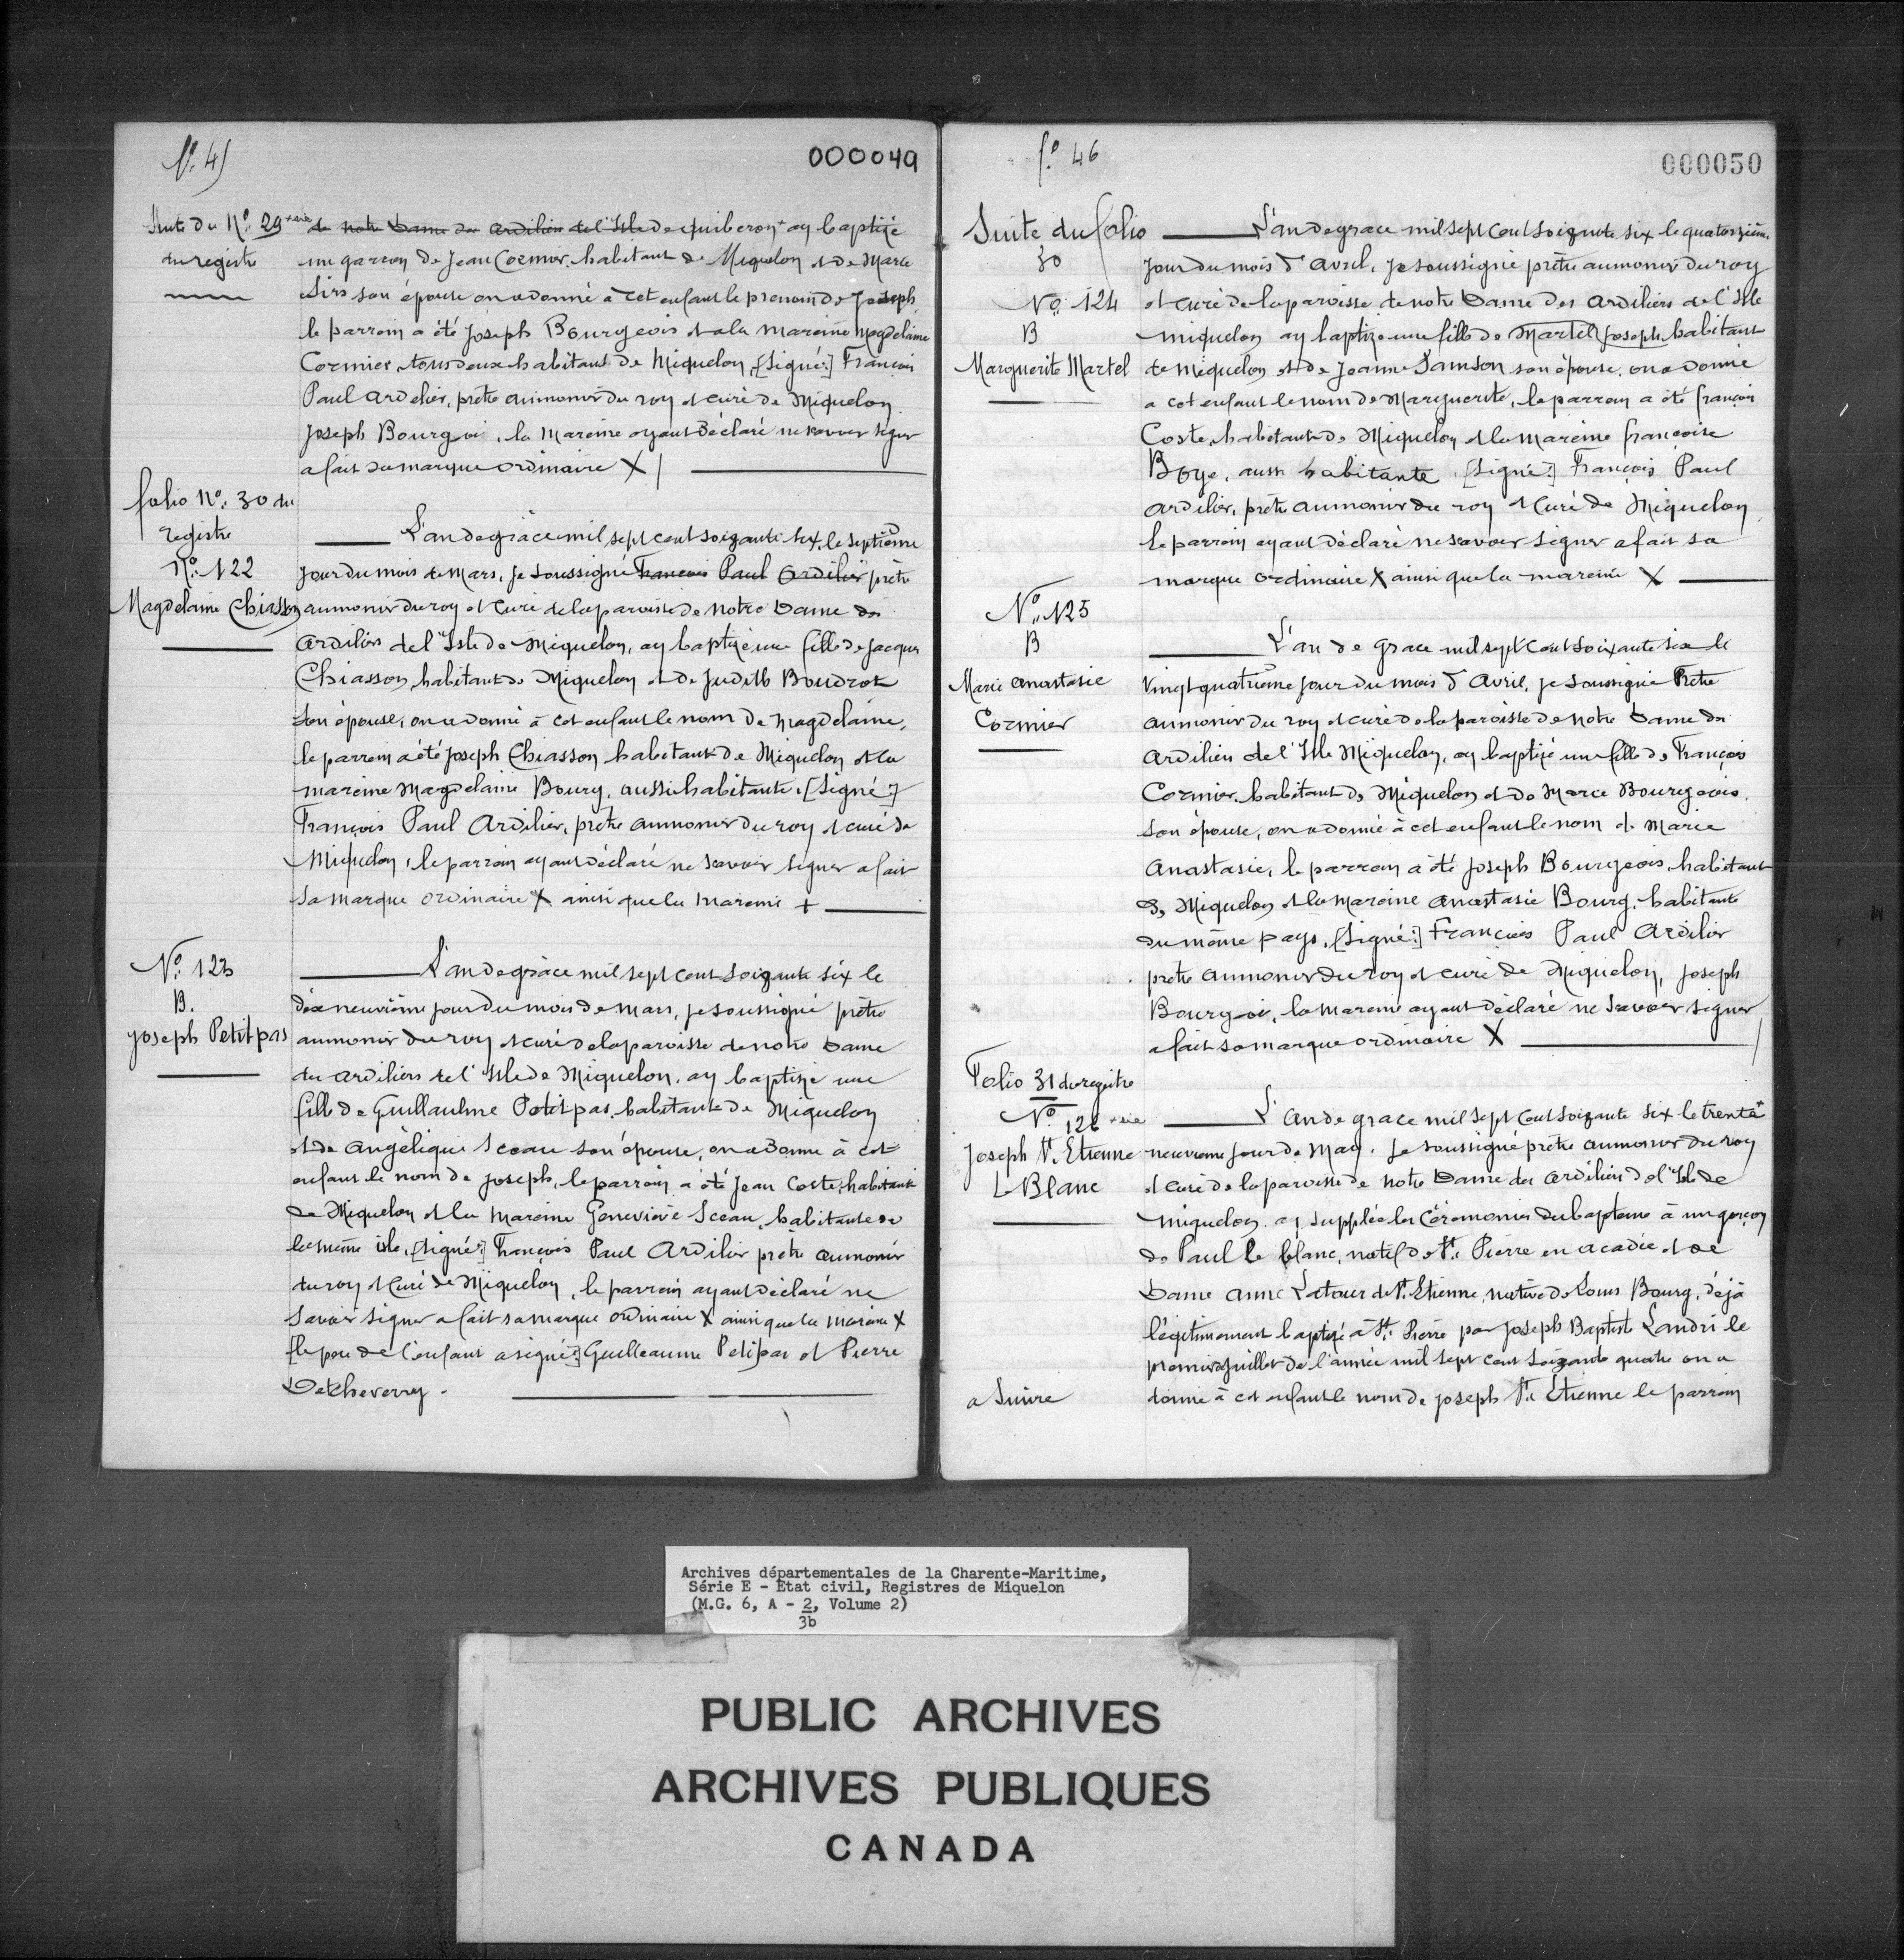 fo. 45
000049
Suite du No. 29
du registre
+sic de notre Dame des Ardiliers de l'Isle de quiberon+ ay baptizé
un garson de Jean Cormier, habitant de Miquelon et de Marie
Sire son épouse on a donné à cet enfant le prenom de Joseph
le parrain a été Joseph Bourgeois et a la mareine Magdelaine
Cormier, tous deux habitant de Miquelon, [signé:] François
Paul Ardelier, prêtre aumonier du roy et curé de Miquelon
Joseph Bourgoi, la mareine ayant déclaré ne savoir signer
a fait sa marque ordinaire X
folio No. 30 du
registre
No. 122
Magdelaine Chiasson
L'an de grâce mil sept cent soixante six, le septième
jour du mois de Mars, je soussigné François Paul Ardilier prêtre
aumonier du roy et curé de la paroisse de notre Dame des
Ardiliers de l'Isle de Miquelon, ay baptizé une fille de Jacques
Chiasson, habitant de Miquelon et de Judith Boudrot
son épouse, on a donné à cet enfant le nom de Magdelaine,
le parrain a été Joseph Chiasson habitant de Miquelon et la
mareine Magdelaine Bourg, aussi habitante. [Signé:]
François Paul Ardilier, prêtre aumonier du roy et curé de
Miquelon, le parrain ayant déclaré ne savoir signer a fait
sa marque ordinaire X ainsi que la mareine +
No. 123
B.
Joseph Petit pas
L'an de grâce mil sept cent soixante six le
dix neuvième jour du mois de mars, je soussigné prêtre
aumonier du roy et curé de la paroisse de notre Dame
des Ardiliers de l'Isle de Miquelon, ay baptizé une
fille de Guillaulme Petit pas, habitant de Miquelon
et de Angélique Sceau son épouse, on a donné à cet
enfant le nom de Joseph, le parrain a été Jean Coste, habitant
de Miquelon et la mareine Geneviève Sceau, habitante de
la même isle, [signé:] François Paul Ardilier prêtre aumonier
du roy et curé de Miquelon, le parrain ayant déclaré ne
savoir signer a fait sa marque ordinaire X ainsi que la mareine X
[le père de l'enfant a signé:] Guilleaume Petitpas et Pierre
Detcheverry.
fo. 46
000050
Suite du folio
30
No. 124
B
Marguerite Martel
L'an de grace mil sept cent soixante six le quatorzième
jour du mois d'avril, je soussigné prêtre aumonier du roy
et curé de la paroisse de notre Dame des Ardiliers de l'Isle
Miquelon ay baptizé une fille de Martel Joseph habitant
de Miquelon et de Jeanne Samson son épouse, on a donné
a cet enfant le nom de Marguerite, le parrain a été françois
Coste, habitant de Miquelon et la mareine françoise
Boye, aussi habitante, [signé:] François Paul
Ardilier, prêtre aumonier du roy et curé de Miquelon
le parrain ayant déclaré ne savoir signer a fait sa
marque ordinaire X ainsi que la mareine X
No. 125
B
Marie Anastasie
Cormier
L'an de grace mil sept cent soixante six le
vingt quatrième jour du mois d'Avril, je soussigné Prêtre
aumonier du roy et curé de la paroisse de notre Dame des
Ardiliers de l'Isle Miquelon, ay baptizé une fille de François
Cormier, habitant de Miquelon et de Marie Bourgeois,
son épouse, on a donné à cet enfant le nom de Marie
Anastasie, le parrain a été Joseph Bourgeois, habitant
de Miquelon et la mareine Anastasie Bourg, habitante
du même pays, [signé:] François Paul Ardilier
prêtre aumonier du roy et curé de Miquelon, Joseph
Bourgoi, la mareine ayant déclaré ne savoir signer
a fait sa marque ordinaire X
Folio 31 du registre
No. 126
Joseph St. Etienne
Le Blanc
L'an de grace mil sept cent soixante six le trente+
+sic neuvieme jour de May, je soussigné prêtre aumonier du roy
et curé de la paroisse de notre Dame des Ardiliers de l'Isle de
Miquelon ay supplée les cérémonies du bapteme à un garçon
de Paul le blanc, natif de St. Pierre en acadie et de
Dame Anne Latour de St. Etienne, native de Louis Bourg, déjà
légitimement baptizé à St. Pierre par Joseph Baptiste Landri le
premier juillet de l'année mil sept cent soixante quatre on a
donné à cet enfant le nom de Joseph St. Étienne le parrain
a suivre
Archives départementales de la Charente-Maritime,
Série E - Etat civil, Registres de Miquelon
(M.G. 6, A - 2, Volume 2)
3b
PUBLIC ARCHIVES
ARCHIVES PUBLIQUES
CANADA